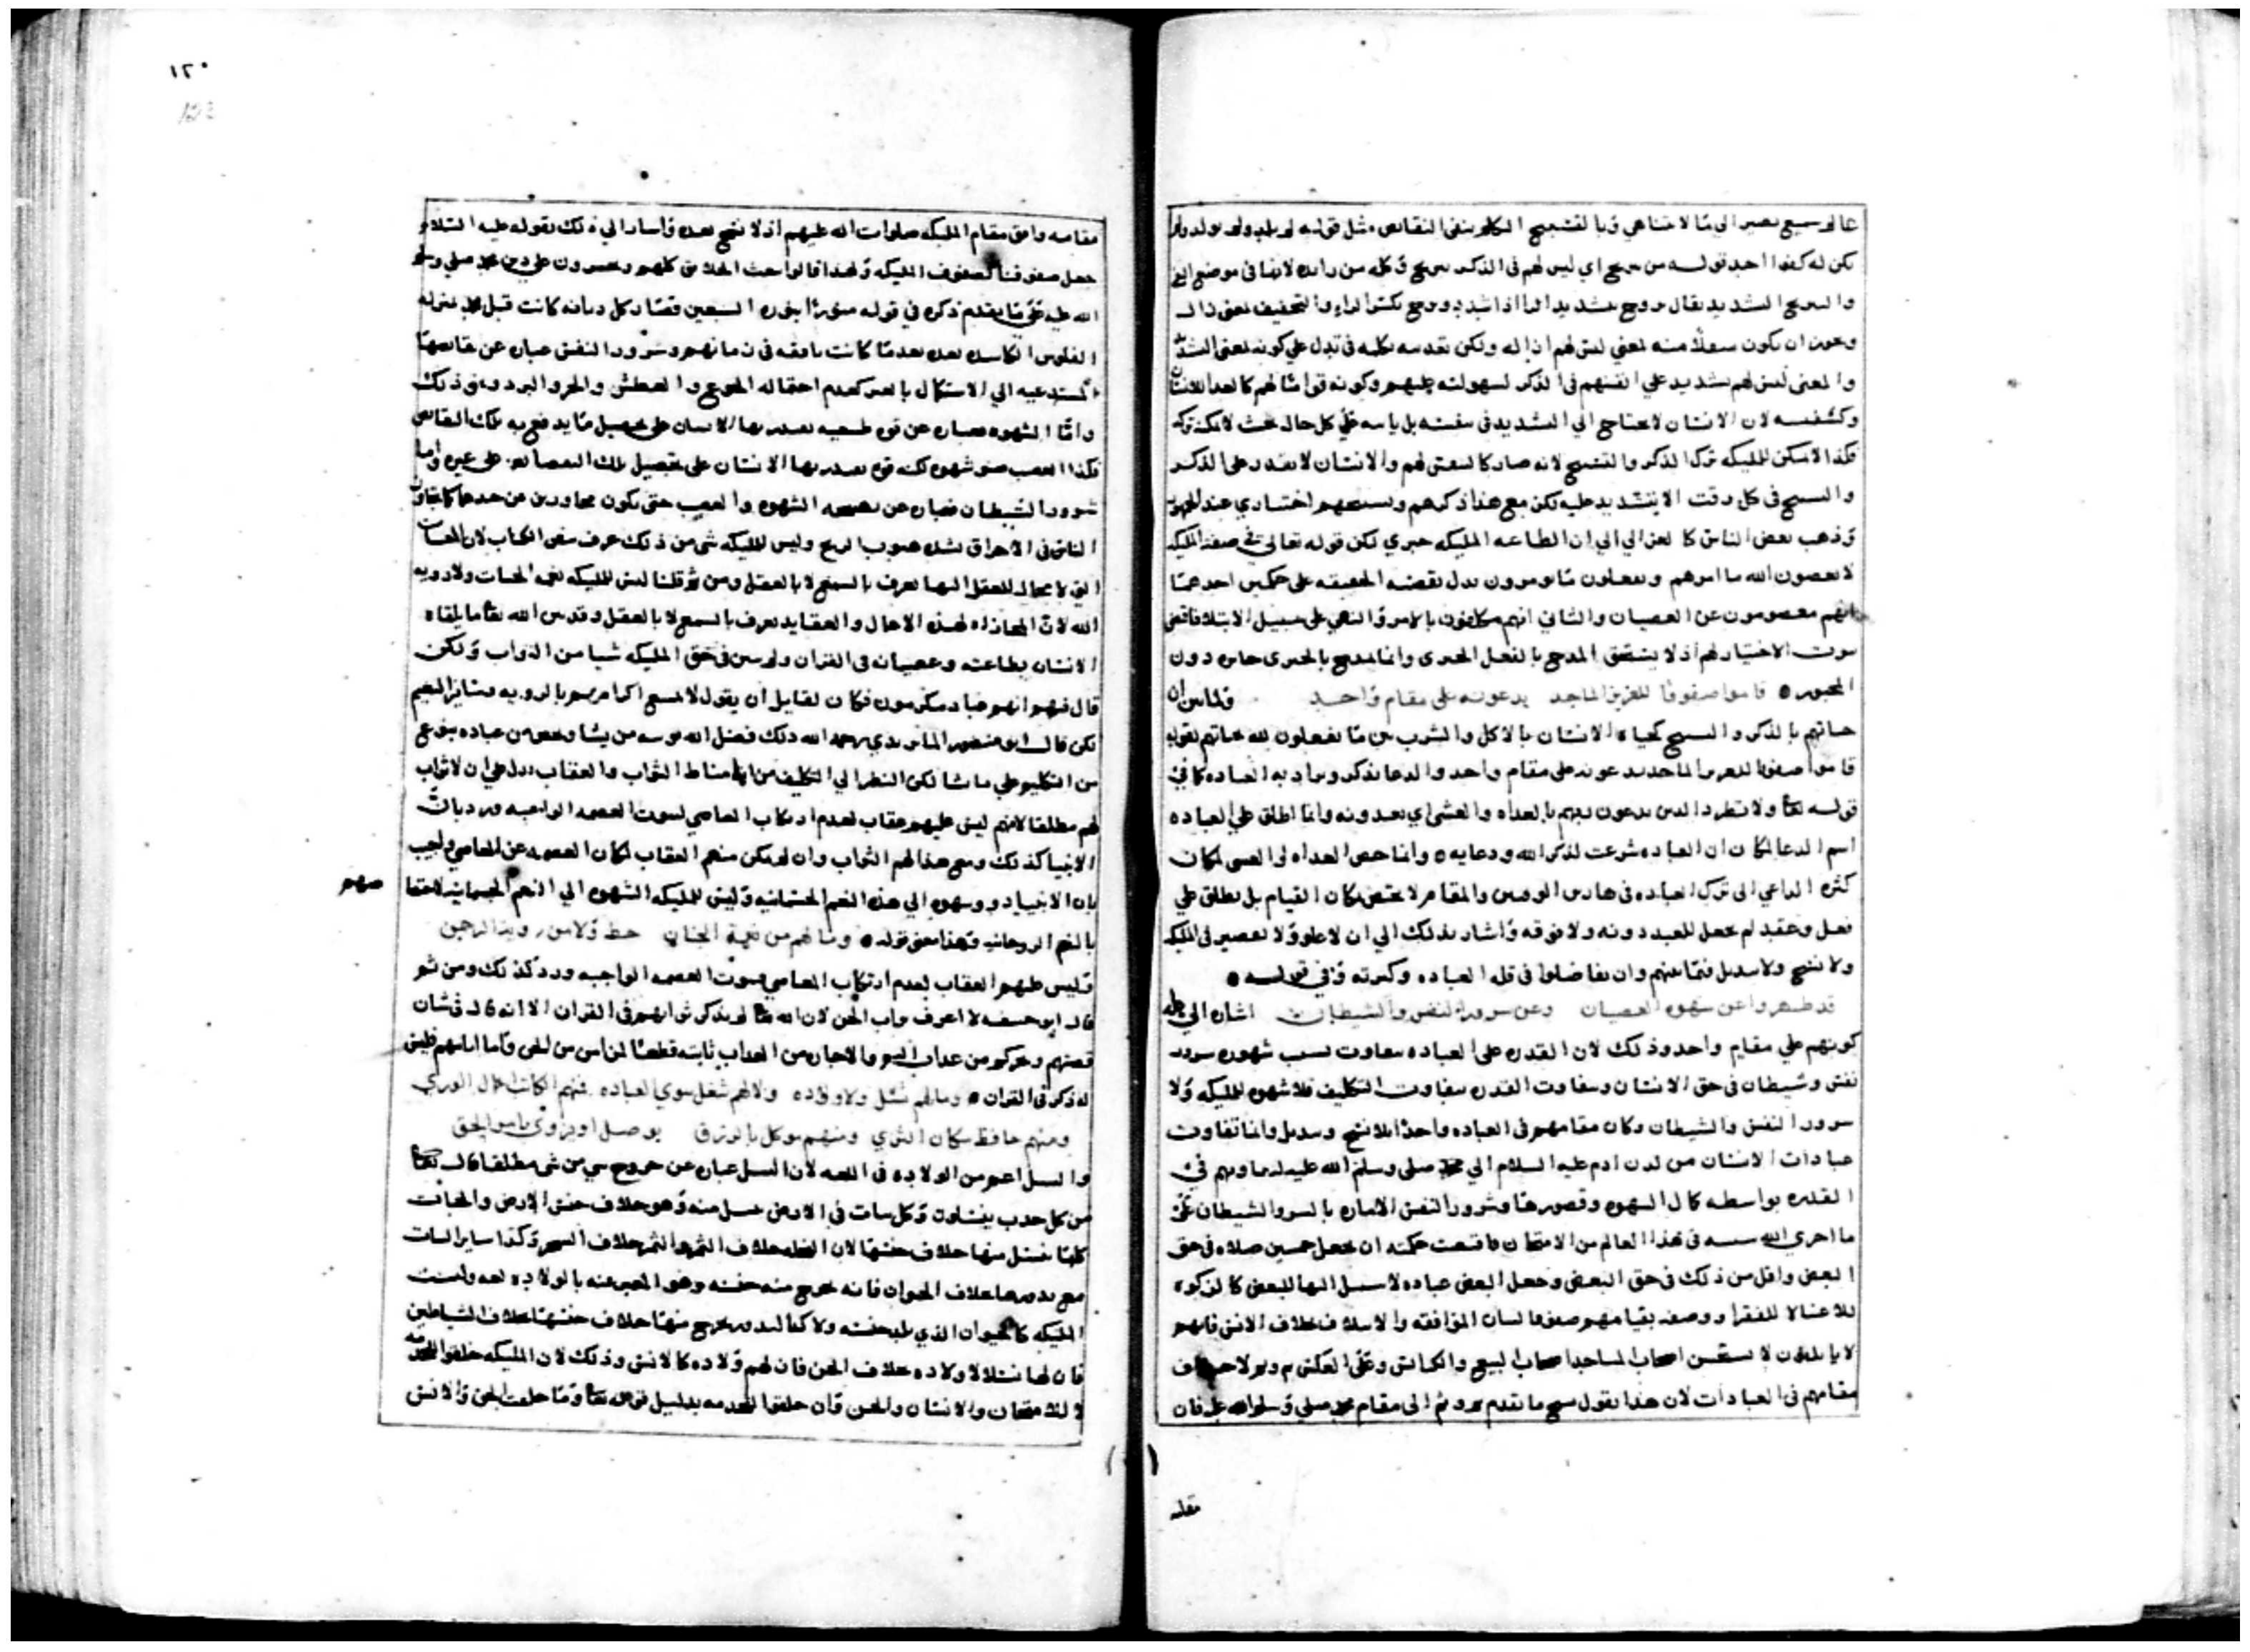 عالم سميع بصير الي ما لا يتناهي وبالتسبيح الكلام بنفي النقائص مثل قوله لم يلد ولم يولد ولم
يكن له كفوا احد قوله من اي ليس لهم في الذكر وكلمة من زايدة لانها في موضع النفي
والتشديد يقال بتشديد الرا اذا شدد بكسر الراء والتخفيف بمعني ذلك
ويجوز ان يكون منه بمعني ليس لهم اذا له ولكن تقدمه كلمة في تدل علي كونه بمعني الشدة
والمعني ليس لهم تشديد علي انفسهم في الذكر لسهولته عليهم وكونه قواما لهم كالغدا للانسان
وكنفسه لان الانسان لا يحتاج الي التشديد في نفسه بل ياتيه علي كل حال بحيث لا يمكنه تركه
فكذا لا يمكن للمليكه ترك الذكر والتسبيح لانه صار كالنفس لهم والانسان لا يقدر علي الذكر
والتسبيح في كل وقت الا بتشديد عليه لكن مع هذا ذكرهم وتسبيحهم اختياري عند الجمهور
وذهب بعض الناس كالغزالي الي ان الطاعه المليكه جبري لكن قوله تعالي في صفة المليكه
لا يعصون الله ما امرهم ويفعلون ما يومرون يدل بقضيه الحقيقه علي حكمين احدهما
انهم معصومون عن العصيان والثاني انهم مكلفون بالامر والنهي علي سبيل الابتلا فاقتضي
ثبوت الاختيار لهم اذ لا يستحق المدح بالفعل الجبري وانما المدح بالجبري جابره دون
المجبور ٥ قاموا صفوفا للعزيز الماجد يدعونه علي مقام واحد ولما بين ان
حياتهم بالذكر والتسبيح كحياة الانسان بالاكل والشرب بين ما يفعلون به حياتهم بقوله
قاموا صفوفا للعزيز الماجد يدعونه علي مقام واحد والدعا يذكر ويراد به العباده كما في
قوله تعا ولا تطرد الذين يدعون ربهم بالغداه والعشي اي يعبدونه وانما اطلق علي العباده
اسم الدعا لمكان ان العباده شرعت لذكر الله ودعايه ٥ وانما خص الغداه والعشي لمكان
كثره الداعي الي ترك العباده في هاذين الوقتين والمقام لا يختص بمكان القيام بل يطلق علي
فعل وعقد لم يجعل للعبد دونه ولا فوقه واشار بذلك الي ان لا علو ولا تقصير في المليكه
ولا نسخ ولا تبديل فيما بينهم وان تفاضلوا في قلة العباده وكثرته وفي قوله ٥
قد طهروا عن شهوة العصيان وعن شرور النفس والشيطان اشاره الي علة
كونهم علي مقام واحد وذلك لان القدره علي العباده تتفاوت بسبب شهوه وشرور
نفس وشيطان في حق الانسان وبتفاوت القدره يتفاوت التكليف فلا شهوه للمليكه ولا
شرور النفس والشيطان وكان مقامهم في العباده واحدا بلا نسخ وتبديل وانما تفاوت
عبادات الانسان من لدن ادم عليه السلام الي محمد صلي وسلم الله عليه لتفاوتهم في
القدره بواسطه كمال الشهوه وقصورها وشرور النفس الاماره بالسو والشيطان علي
ما اجري الله سنته في هذا العالم من الامتحان فاقتضت حكمته ان يجعل خمسين صلاه في حق
البعض واقل من ذلك في حق البعض وجعل البعض عباده لا سبيل اليها للبعض كالزكوه
للاغنيا لا للفقرا ووصف بقيامهم صفوفا لبيان الموافقه والائتلاف بخلاف الانس فانهم
لا ياتلفون لا يستحسن اصحاب المساجد اصحاب البيع والكنائس وعلي العكس
مقامهم في العبادات لان هذا يقول بنسخ ما تقدم ثم الي مقام محمد صلي وسلم الله عليه فان
مقامه
١٢٠
مقامه وافق مقام المليكه صلوات الله عليهم اذ لا نسخ بعده واشار الي ذلك بقوله عليه السلام
جعل صفوفنا كصفوف المليكه ولهذا قالوا يبعث الخلائق كلهم ويحشرون علي دين محمد صلي وسلم
الله عليه علي ما تقدم ذكره في قوله منورا بنوره السبعين فصار كل ديانه كانت قبل محمد بمنزلة
الفلوس الكاسده بعده بعدما كانت نافقه في زمانهم وشرور النفس عباره عن نقايصها
المستدعيه الي الاستكمال بالغير كعدم احتماله الجوع والعطش والحر والبرد ونحو ذلك
واما الشهوه فعباره عن قوه طبيعيه يقدر بها الانسان علي تحصيل ما يدفع به تلك النقائص
فكذا الغضب شهوه لكنه قوه يقدر بها الانسان علي تحصيل تلك النقصانه علي غيره واما
شرور الشيطان فعباره عن تهييجه الشهوه والغضب حتي يكون مجاوزين عن حدهما كايقاد
النار في الاحراق بشده هبوب الريح وليس للمليكه شي من ذلك عرف بنفس الكتاب لان المغيبات
التي لا مجال للعقل اليها تعرف بالسمع لا بالعقل ومن ثم قلنا ليس للمليكه نعمة الجنات ولا رويه
الله لان المجازاه لهذه الاعمال والعقايد تعرف بالسمع لا بالعقل وقد بين الله تعا ما يلقاه
الانسان بطاعته وعصيانه في القران ولم يبين في حق المليكه شيا من الثواب ولكن
قال فيهم انهم عباد مكرمون فكان لقايل ان يقول لا نمنع اكرامهم بالرويه وساير النعيم
لكن قال ابو منصور الماتريدي رحمه الله ذلك فضل الله يوتيه من يشا ويخص من عباده بنوع
من التكليم علي ما شا لكن النظر الي التكليف من انها مناط الثواب والعقاب يدل علي ان لا ثواب
لهم مطلقا لانهم ليس عليهم عقاب لعدم ارتكاب المعاصي لثبوت العصمه الواجبه ورد بان
الانبيا كذلك ومع هذا لهم الثواب وان لم يكن منهم العقاب لمكان العصمه عن المعاصي واجيب
بان الانبيا ذوو شهوه الي هذه النعم الجسمانيه وليس للمليكه الشهوه الي النعم الجسمانيه لاكتفا
صهم
بالنعم الروحانيه وهذا معني قوله ٥ وما لهم من نعمة الجنان حظ ولا من روية الرحمن
وليس عليهم العقاب لعدم ارتكاب المعاصي لثبوت العصمه الواجبه ورد كذلك ومن ثم
قال ابو حنيفه لا اعرف ثواب الجن لان الله تعا لم يذكر ثوابهم في القران الا انه قال في شان
قصتهم ويجركم من عذاب اليم والاجاره من العذاب ثابته قطعا لمن امن من الجن واما اثابتهم فليس
له ذكر في القران ٥ وما لهم نسل ولا ولاده ولا لهم شغل سوي العباده فمنهم الكاتب اعمال الوري
ومنهم حافظ سكان الثري ومنهم موكل بالرزق يوصل او يزوي بامر الحق
والنسل اعم من الولاده في اللغه لان النسل عباره عن خروج شي من شي مطلقا قال تعا
من كل حدب ينسلون وكل نبات في الارض نسل منه وهو خلاف جنس الارض والنبات
كلها ينسل منها خلاف جنسها لان النخله خلاف الثمر والثمر خلاف الشجر وكذا ساير النبات
مع بذورها بخلاف الحيوان فانه يخرج منه جنسه وهو المعبر عنه بالولاده لغه وليست
المليكه كالحيوان الذي يلد جنسه ولا كالبذر يخرج منها خلاف جنسها بخلاف الشياطين
فان لها نسلا لا ولاده بخلاف الجن فان لهم ولاده كالانس وذلك لان المليكه خلقوا للخدمه
لا للامتحان والانسان والجن وان خلقوا للخدمه بدليل قوله تعا وما خلقت الجن والانس